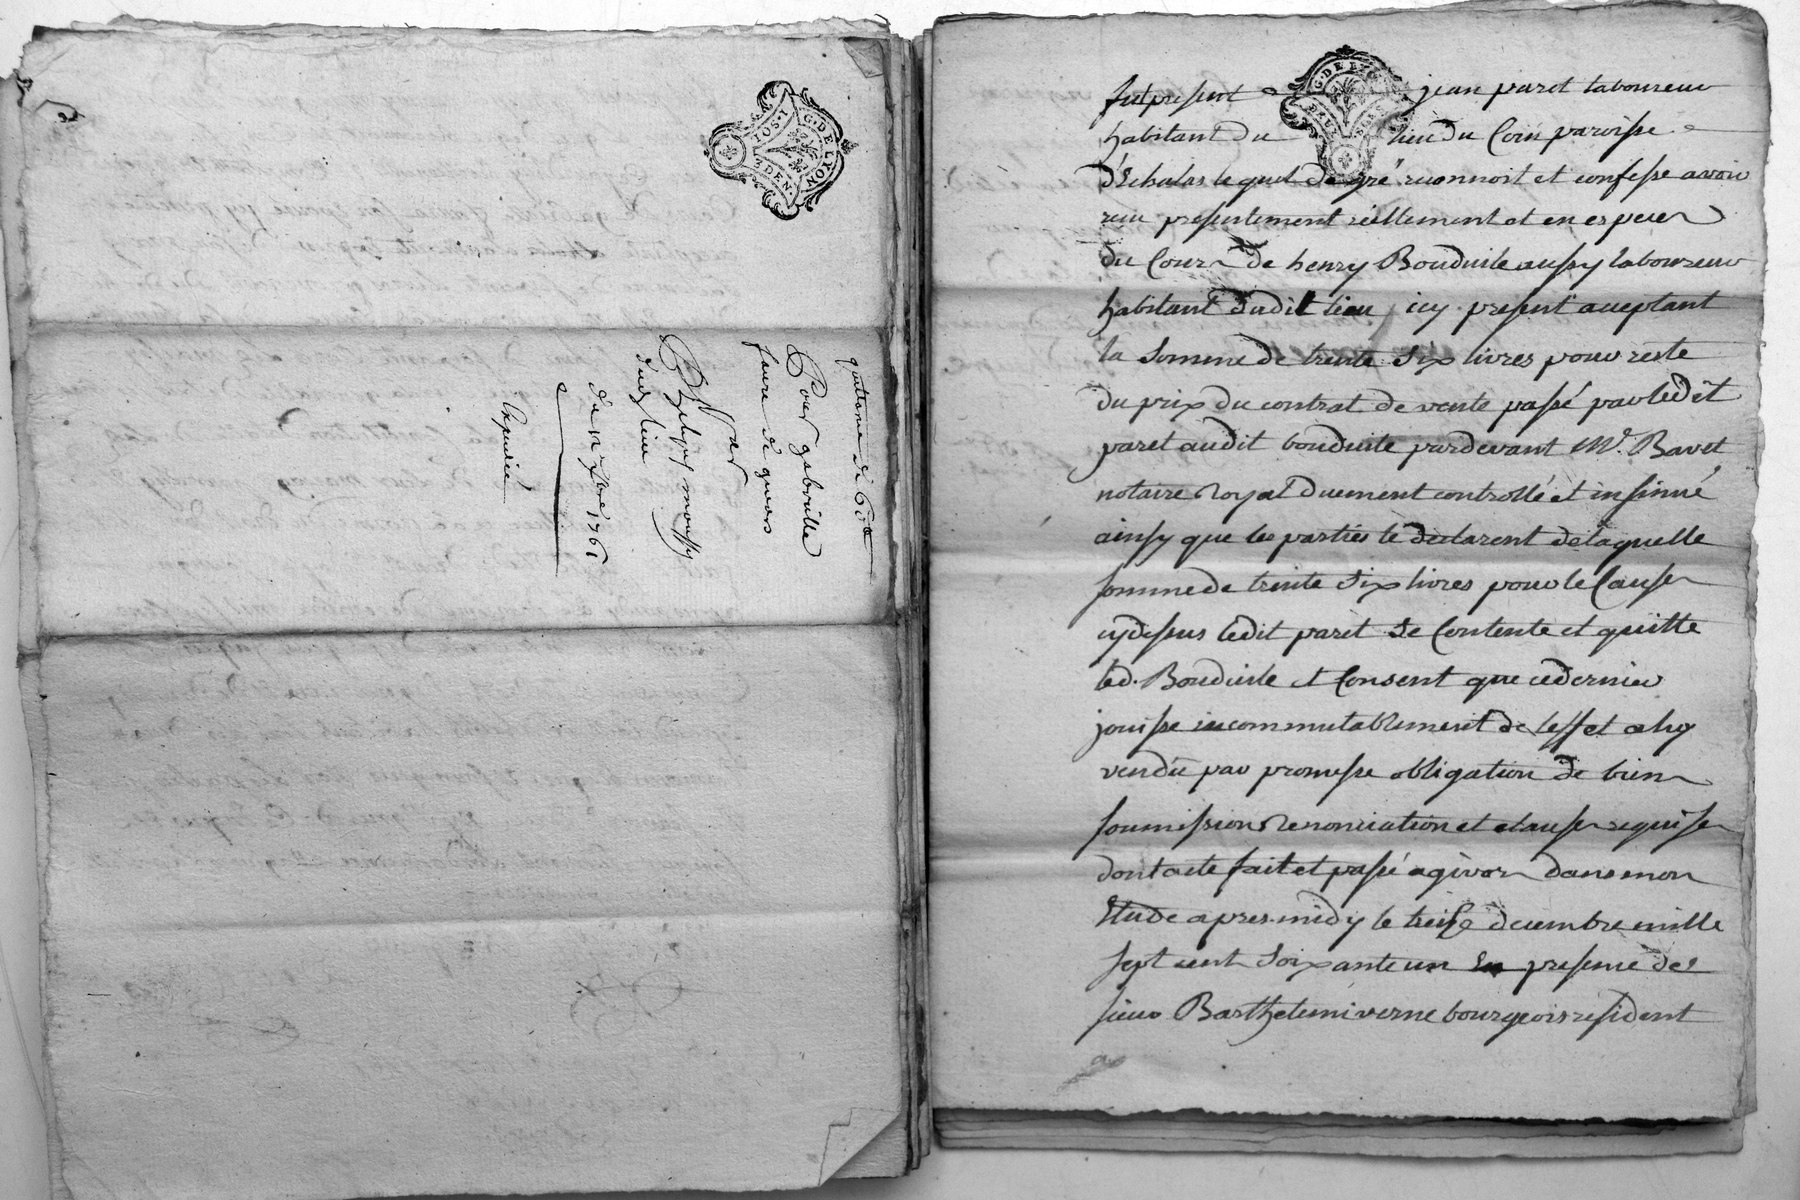 G. DE LYON
2 DEN
quittance de 60#
Pour gaboulle
faure de givors
Par
Philipes moussy
dudz lieu
du 12 Xbre 1761
Expediée
G. DE LYON
fut present jean paret laboureur
habitant du lieu du Coin paroisse
d'Echalas lequel de gré reconnoit et confesse avoir
recu presentement réellement et en especes
du Cour de henry Bonduile aussy laboureur
habitant dudit lieu icy present acceptant
la somme de trente six livres pour reste
du prix du contrat de vente passé par ledit
paret audit bonduile pardevant Me. Bavet
notaire Royal duement controllé et insinué
ainsy que les parties le declarent de laquelle
somme de trente six livres pour le Cause
cydessus ledit paret se Contente et quitte
led. Bonduile et Consent que cedernier
jouisse incommutablement de leffet a luy
vendu par promesse obligation de bien
soumission renonciation et clause requise
dont acte fait et passé a givor dans mon
Etude apres midy le treise decembre mille
sept cent soixante un En presence de
sieur Barthelemi verne bourgeois resident